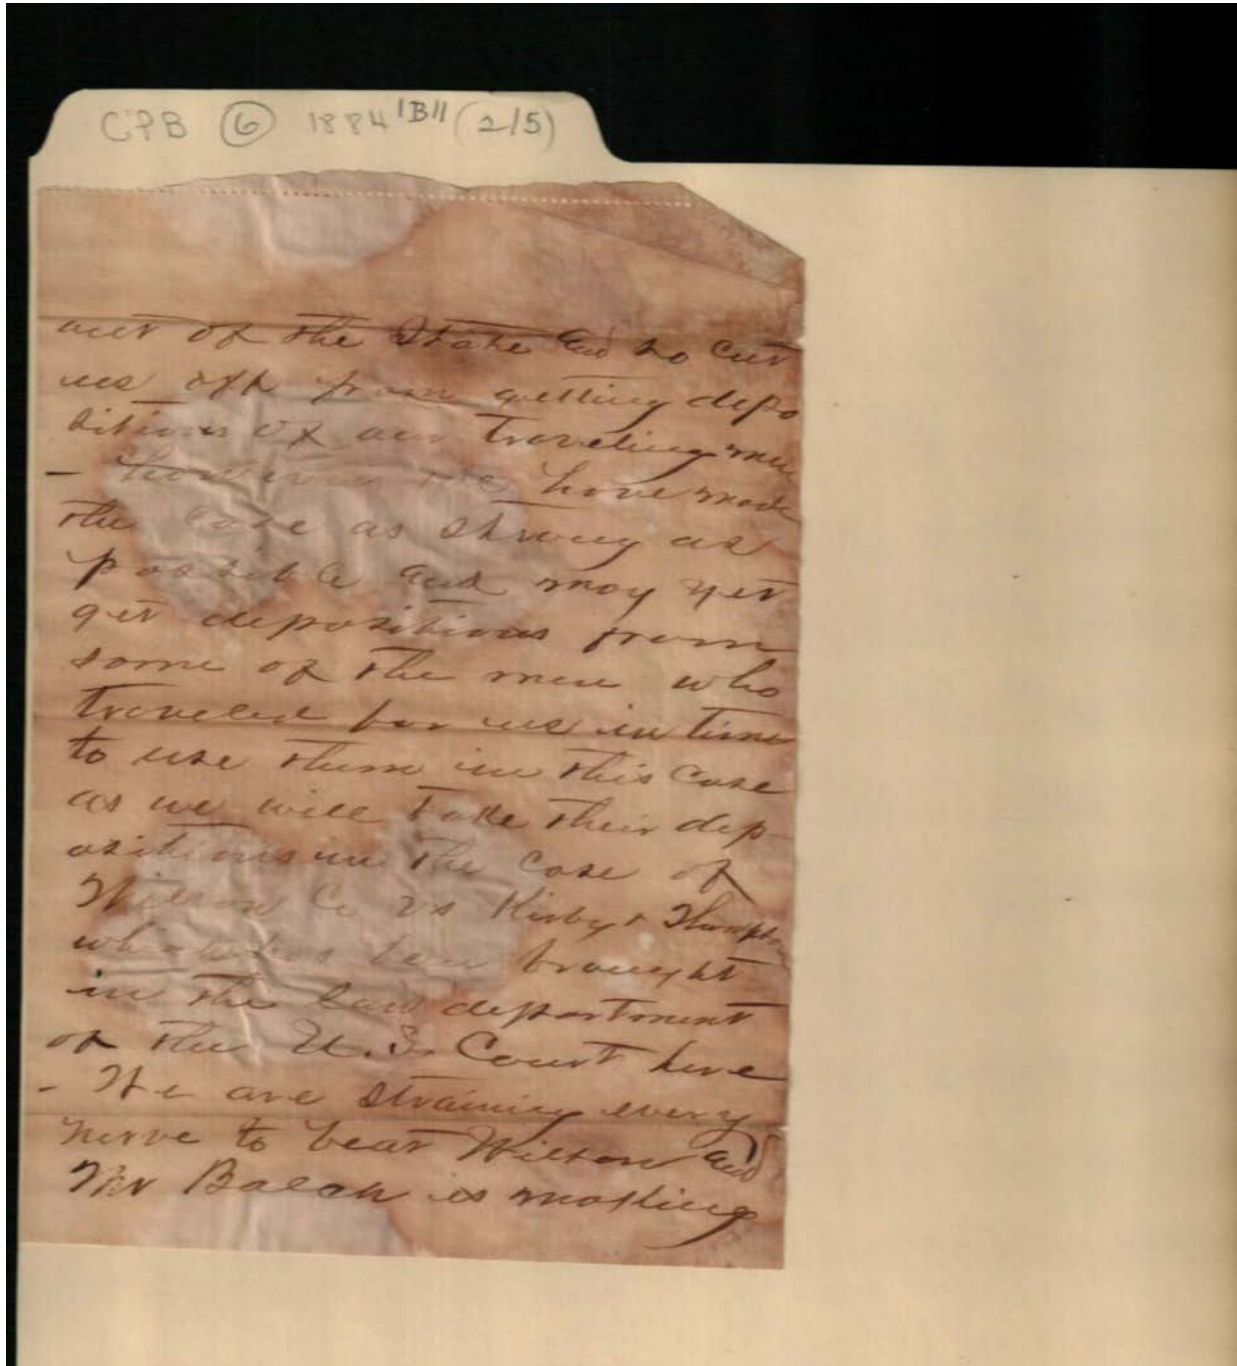 CPB 6 1884 "B" (2/5)
out of the State and so cut
us off from getting depo
sitions of our traveling men
- however we have made
the case as strong as
possible and may yet
get depositions from
some of the men who
traveled for us in time
to use them in this case
as we will take their dep-
ositions in the case of
Wilson Co vs Kirby &
which has been brought
in the law department
of the U.S. Court here
- We are straining every
nerve to beat Wilson and
Mr Balch is making